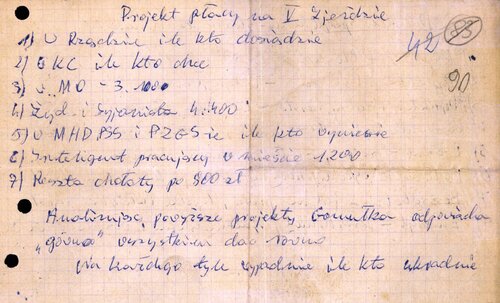 Projekt płacy na V Zjeździe
42 83
1) W Rządzie ile kto dosiądzie
2) W KC ile kto chce
90
3) W MO - 3.1000
4) Żyd i Syjonista 4.400
5) W MHD PSS i PZGS-ie ile kto wyniesie
6) Inteligent pracujący w mieście 1.200
7) Reszta chołoty po 800 zł
Analizując powyższe projekty Gomułka odpowiada
„gówno" wszystkim dać równo
na każdego tyle wypadnie ile kto ukradnie